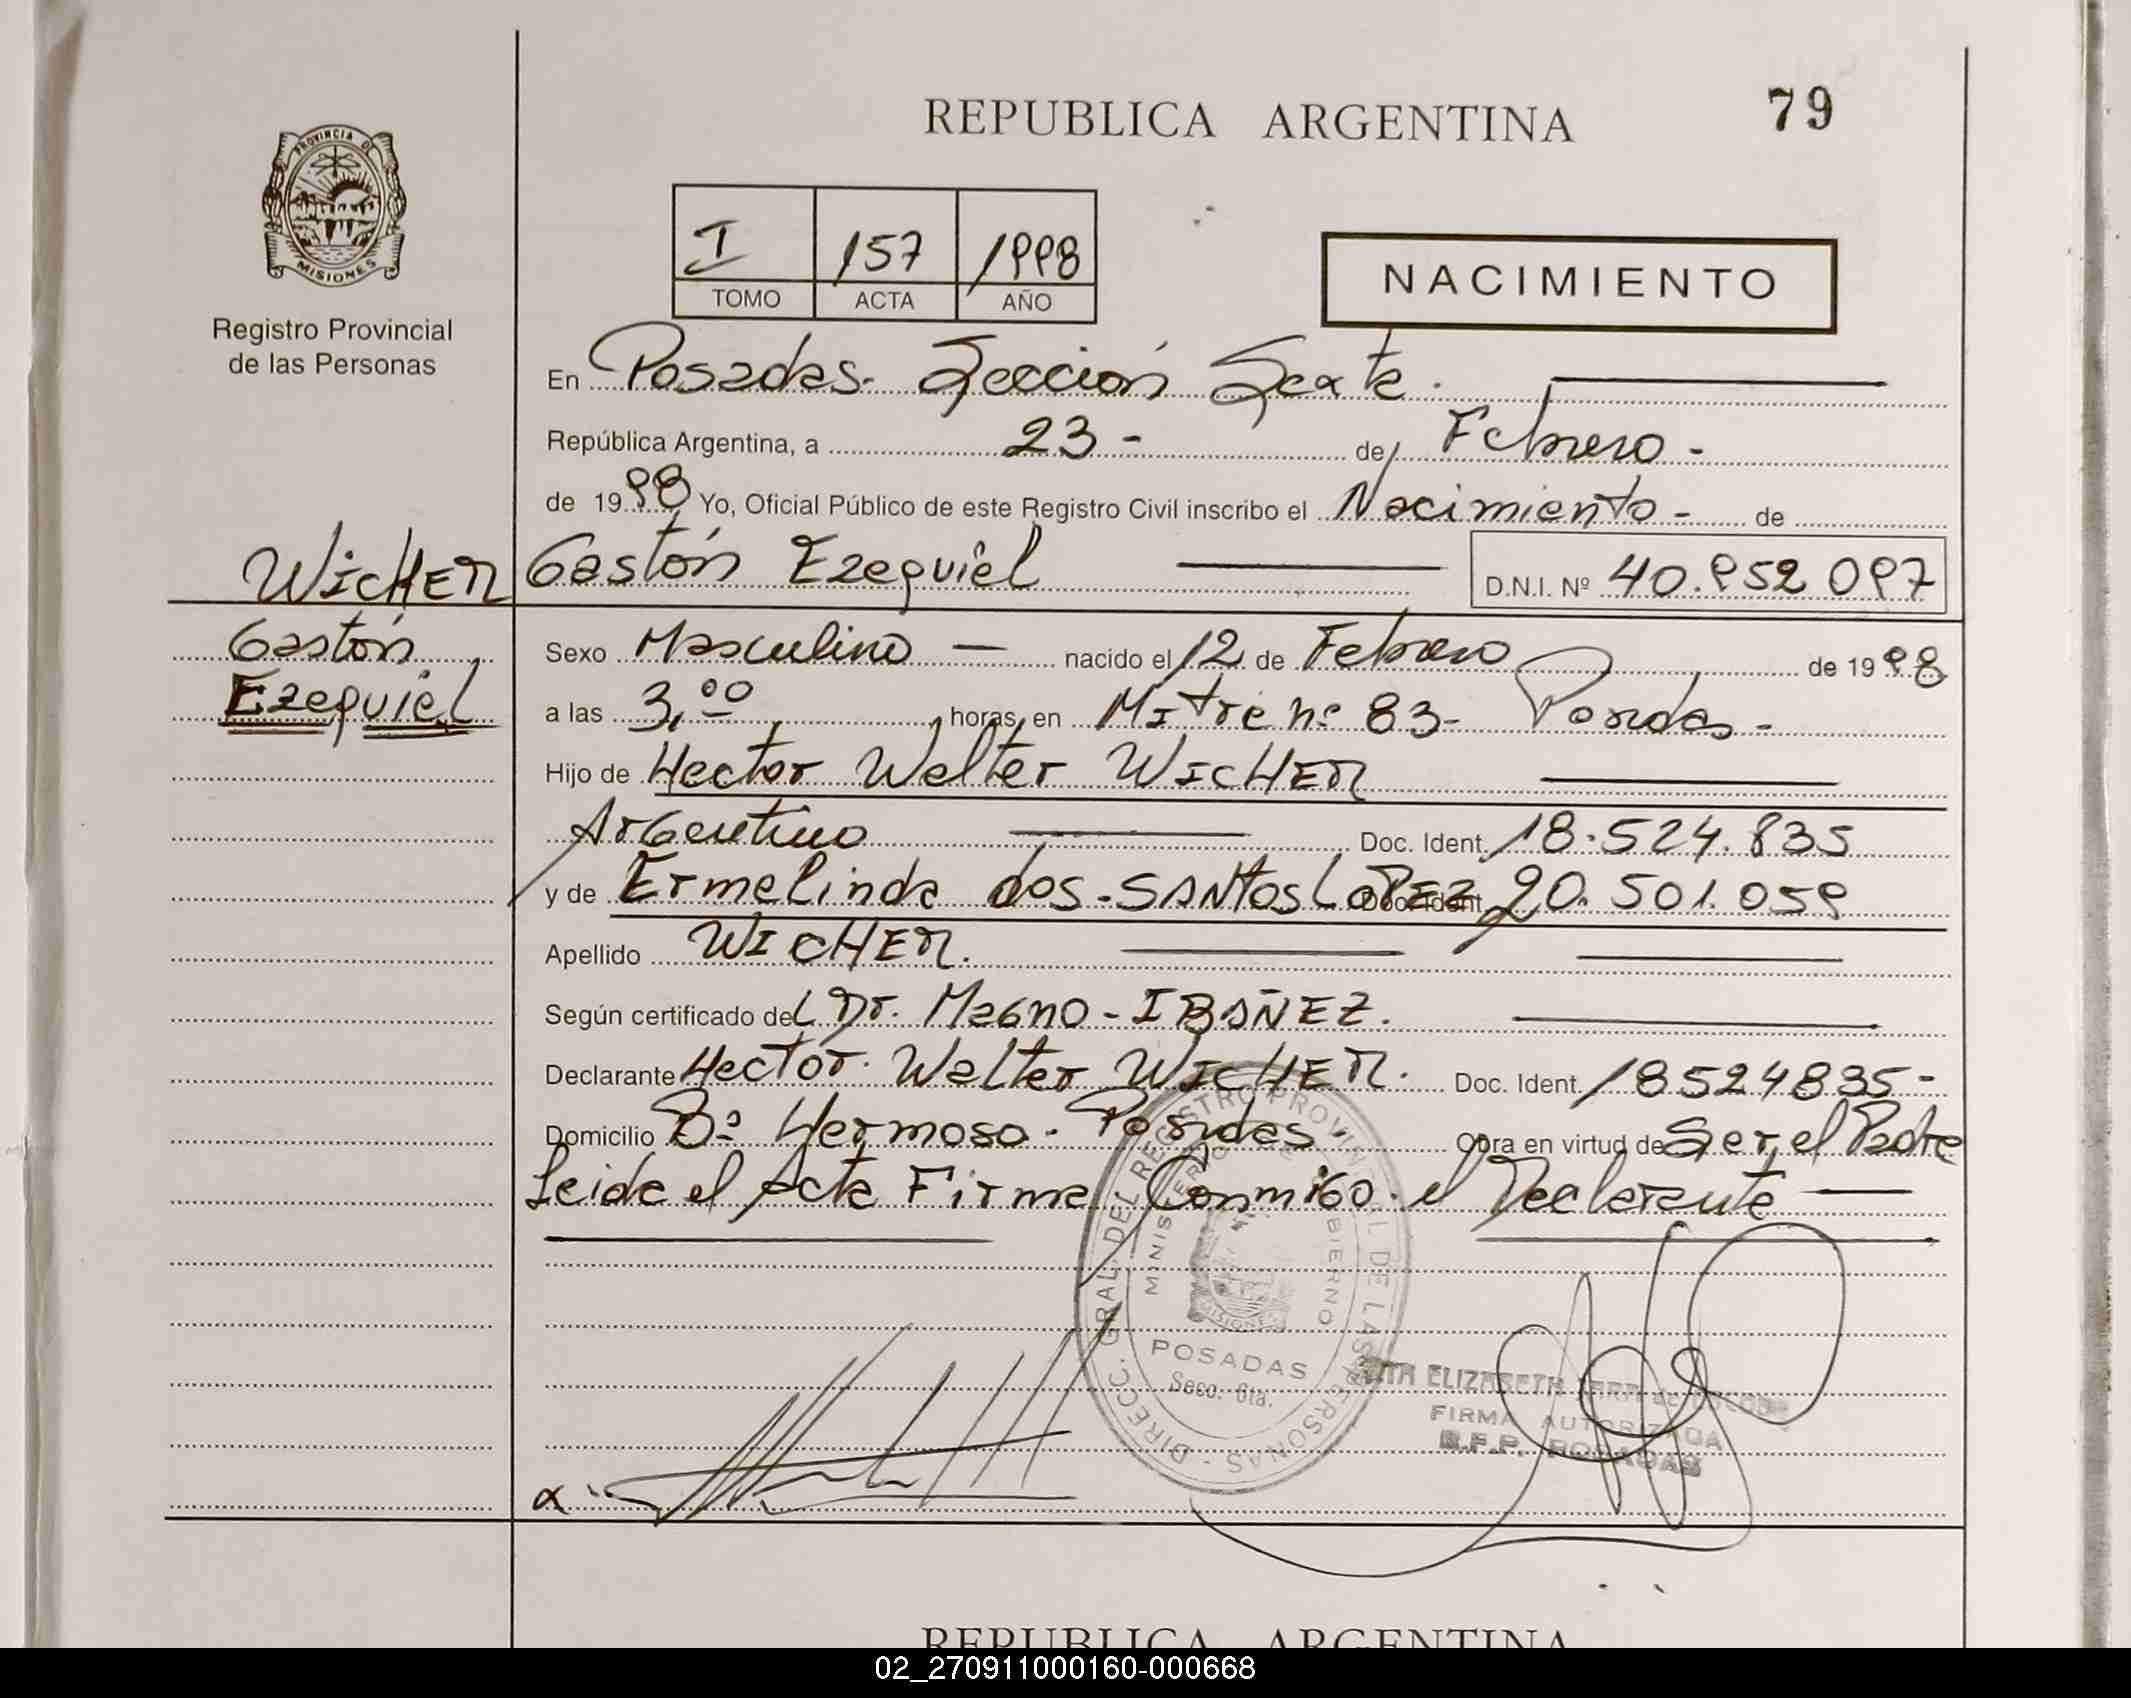 REPUBLICA ARGENTINA
79
PROVINCIA DE
MISIONES
Registro Provincial
de las Personas
I 157 1998
TOMO ACTA AÑO
NACIMIENTO
En Posadas- Sección Sexta.
República Argentina, a 23 - de Febrero -
de 1998 Yo, Oficial Público de este Registro Civil inscribo el Nacimiento - de
WICHER Gastón Ezequiel D.N.I. Nº 40.952 097
Gastón
Ezequiel
Sexo Masculino — nacido el 12 de Febrero de 1998
a las 3,00 horas, en Mitre nº 83- Posadas -
Hijo de Hector Walter WICHER
Argentino Doc. Ident. 18.524.835
y de Ermelinda dos-SANTOS LOPEZ Doc. Ident. 20.501.059
Apellido WICHER.
Según certificado del Dr. Magno - IBAÑEZ.
Declarante Hector Walter WICHER. Doc. Ident. 18524835-
Domicilio Bº Hermoso - Posadas- Obra en virtud de Ser el Padre
Leida el Acta Firma Conmigo el Declarante —
DIRECC. GRAL. DEL REGISTRO PROVINCIAL DE LAS PERSONAS -
MINISTERIO DE GOBIERNO
MISIONES
POSADAS
Secc. 6ta.
ELIZABETH
FIRMA AUTORIZADA
POSADAS
REPUBLICA ARGENTINA
02_270911000160-000668